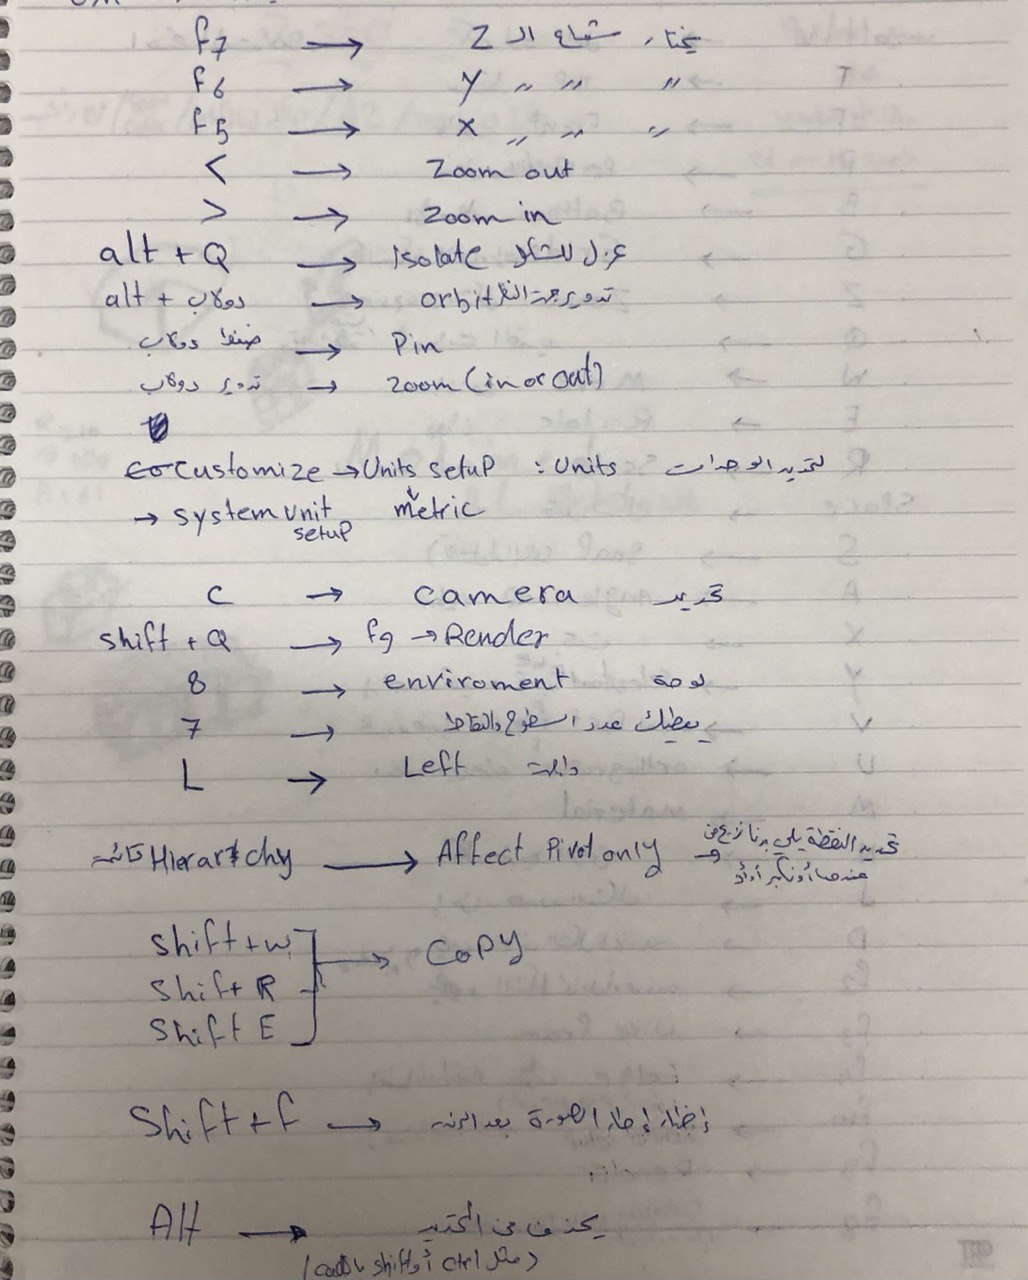 f7 → يختار شعاع الـ Z
f6 → Y 〃 〃 〃
f5 → X 〃 〃 〃
< → Zoom out
> → Zoom in
alt + Q → Isolate عزل للشكل
alt + دولاب → orbit تدوير جهة النظر
ضغط دولاب → Pin
تدوير دولاب → zoom (in or out)
customize → Units setup : Units لتحديد الوحدات
→ system unit setup metric
c → camera تحديد
shift + Q → f9 → Render
8 → enviroment لوحة
7 → يعطيك عدد السطوح والنقاط
L → Left
قائمة Hierarchy → Affect Pivot only → تحديد النقطة يلي بدنا
shift + w
shift R
shift E
→ Copy
Shift + f → إظهار إطار الصورة بعد
Alt → يحذف من التحديد
(مثل ctrl أو shift